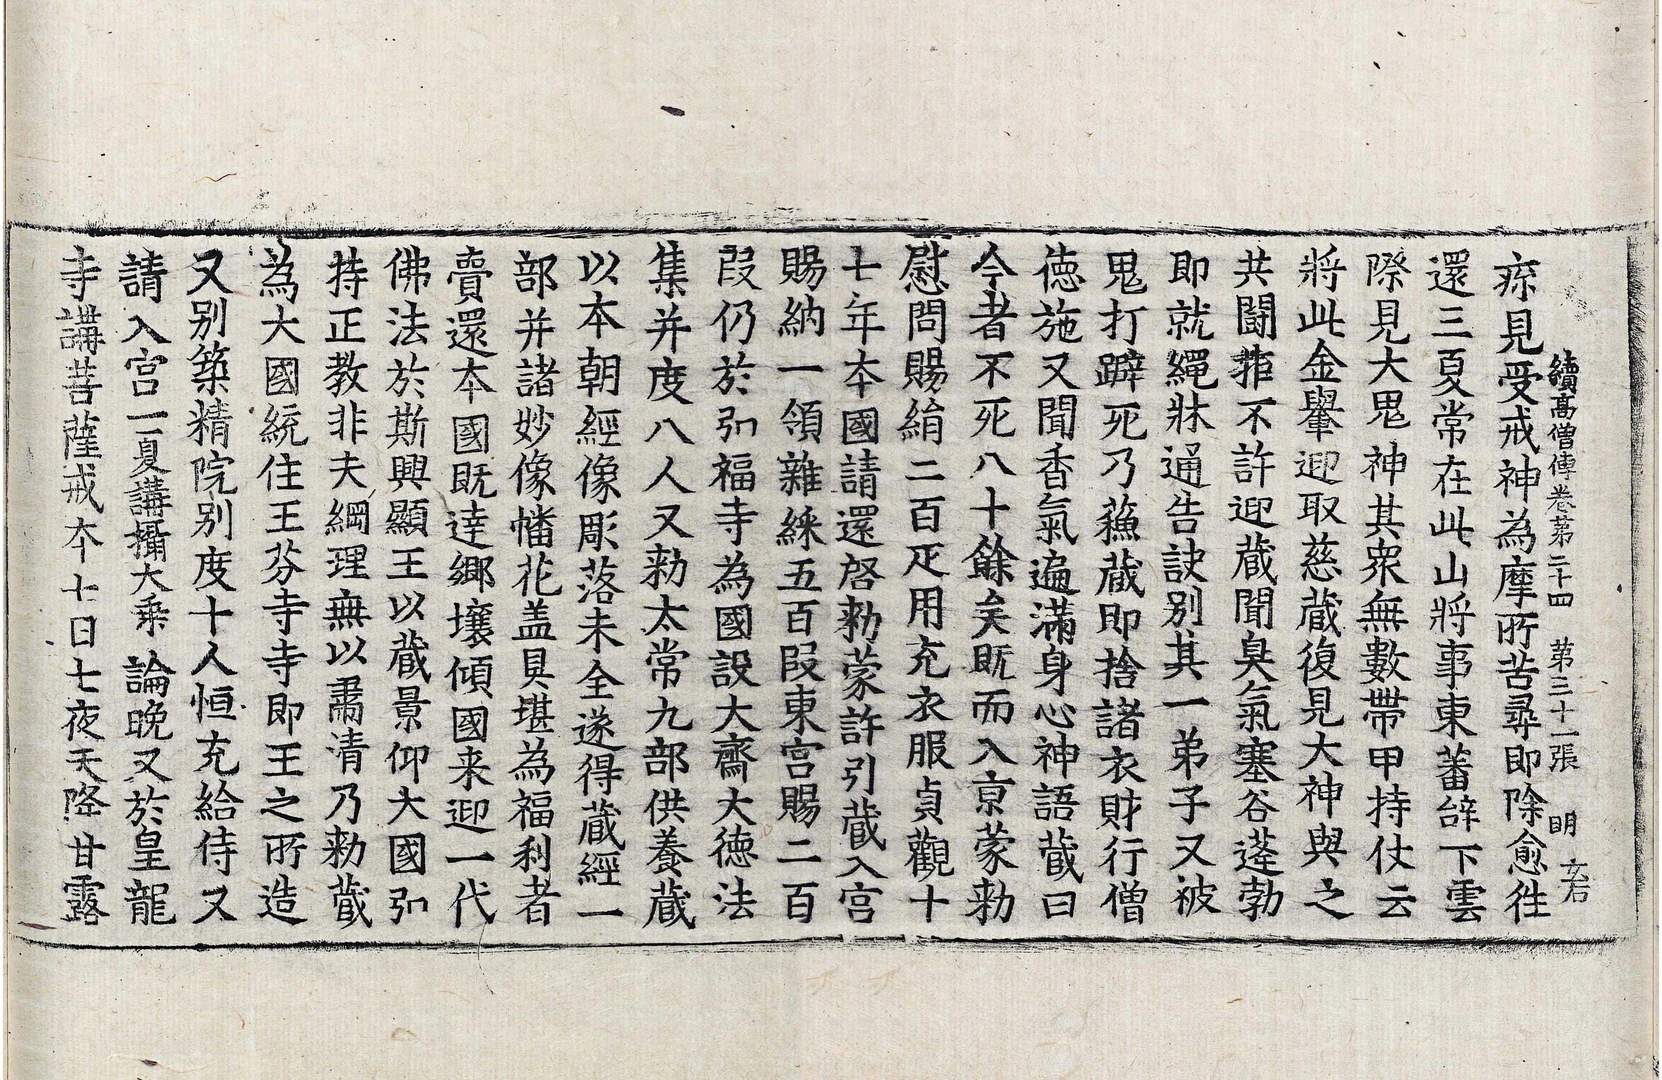 續高僧傳卷第二十四 第三十一張 明 玄君
瘵見受戒神為摩所苦尋即除愈徃
還三夏常在此山將事東蕃辞下雲
際見大鬼神其衆無數帶甲持仗云
將此金轝迎取慈蔵復見大神與之
共鬪拒不許迎蔵聞臭氣塞谷蓬勃
即就繩牀通告訣別其一弟子又被
鬼打躃死乃蘇蔵即捨諸衣財行僧
德施又聞香氣遍滿身心神語蔵曰
今者不死八十餘矣既而入京蒙勑
慰問賜絹二百疋用充衣服貞觀十
七年本國請還啓勑蒙許引蔵入宮
賜納一領雜綵五百段東宮賜二百
段仍於弘福寺為國設大齋大德法
集并度八人又勑太常九部供養蔵
以本朝經像彫落未全遂得蔵經一
部并諸妙像幡花盖具堪為福利者
賷還本國既達鄉壤傾國来迎一代
佛法於斯興顯王以蔵景仰大國弘
持正教非夫綱理無以肅清乃勑蔵
為大國統住王芬寺寺即王之所造
又別築精院別度十人恒充給侍又
請入宮一夏講攝大乘論晚又於皇龍
寺講菩薩戒本七日七夜天降甘露